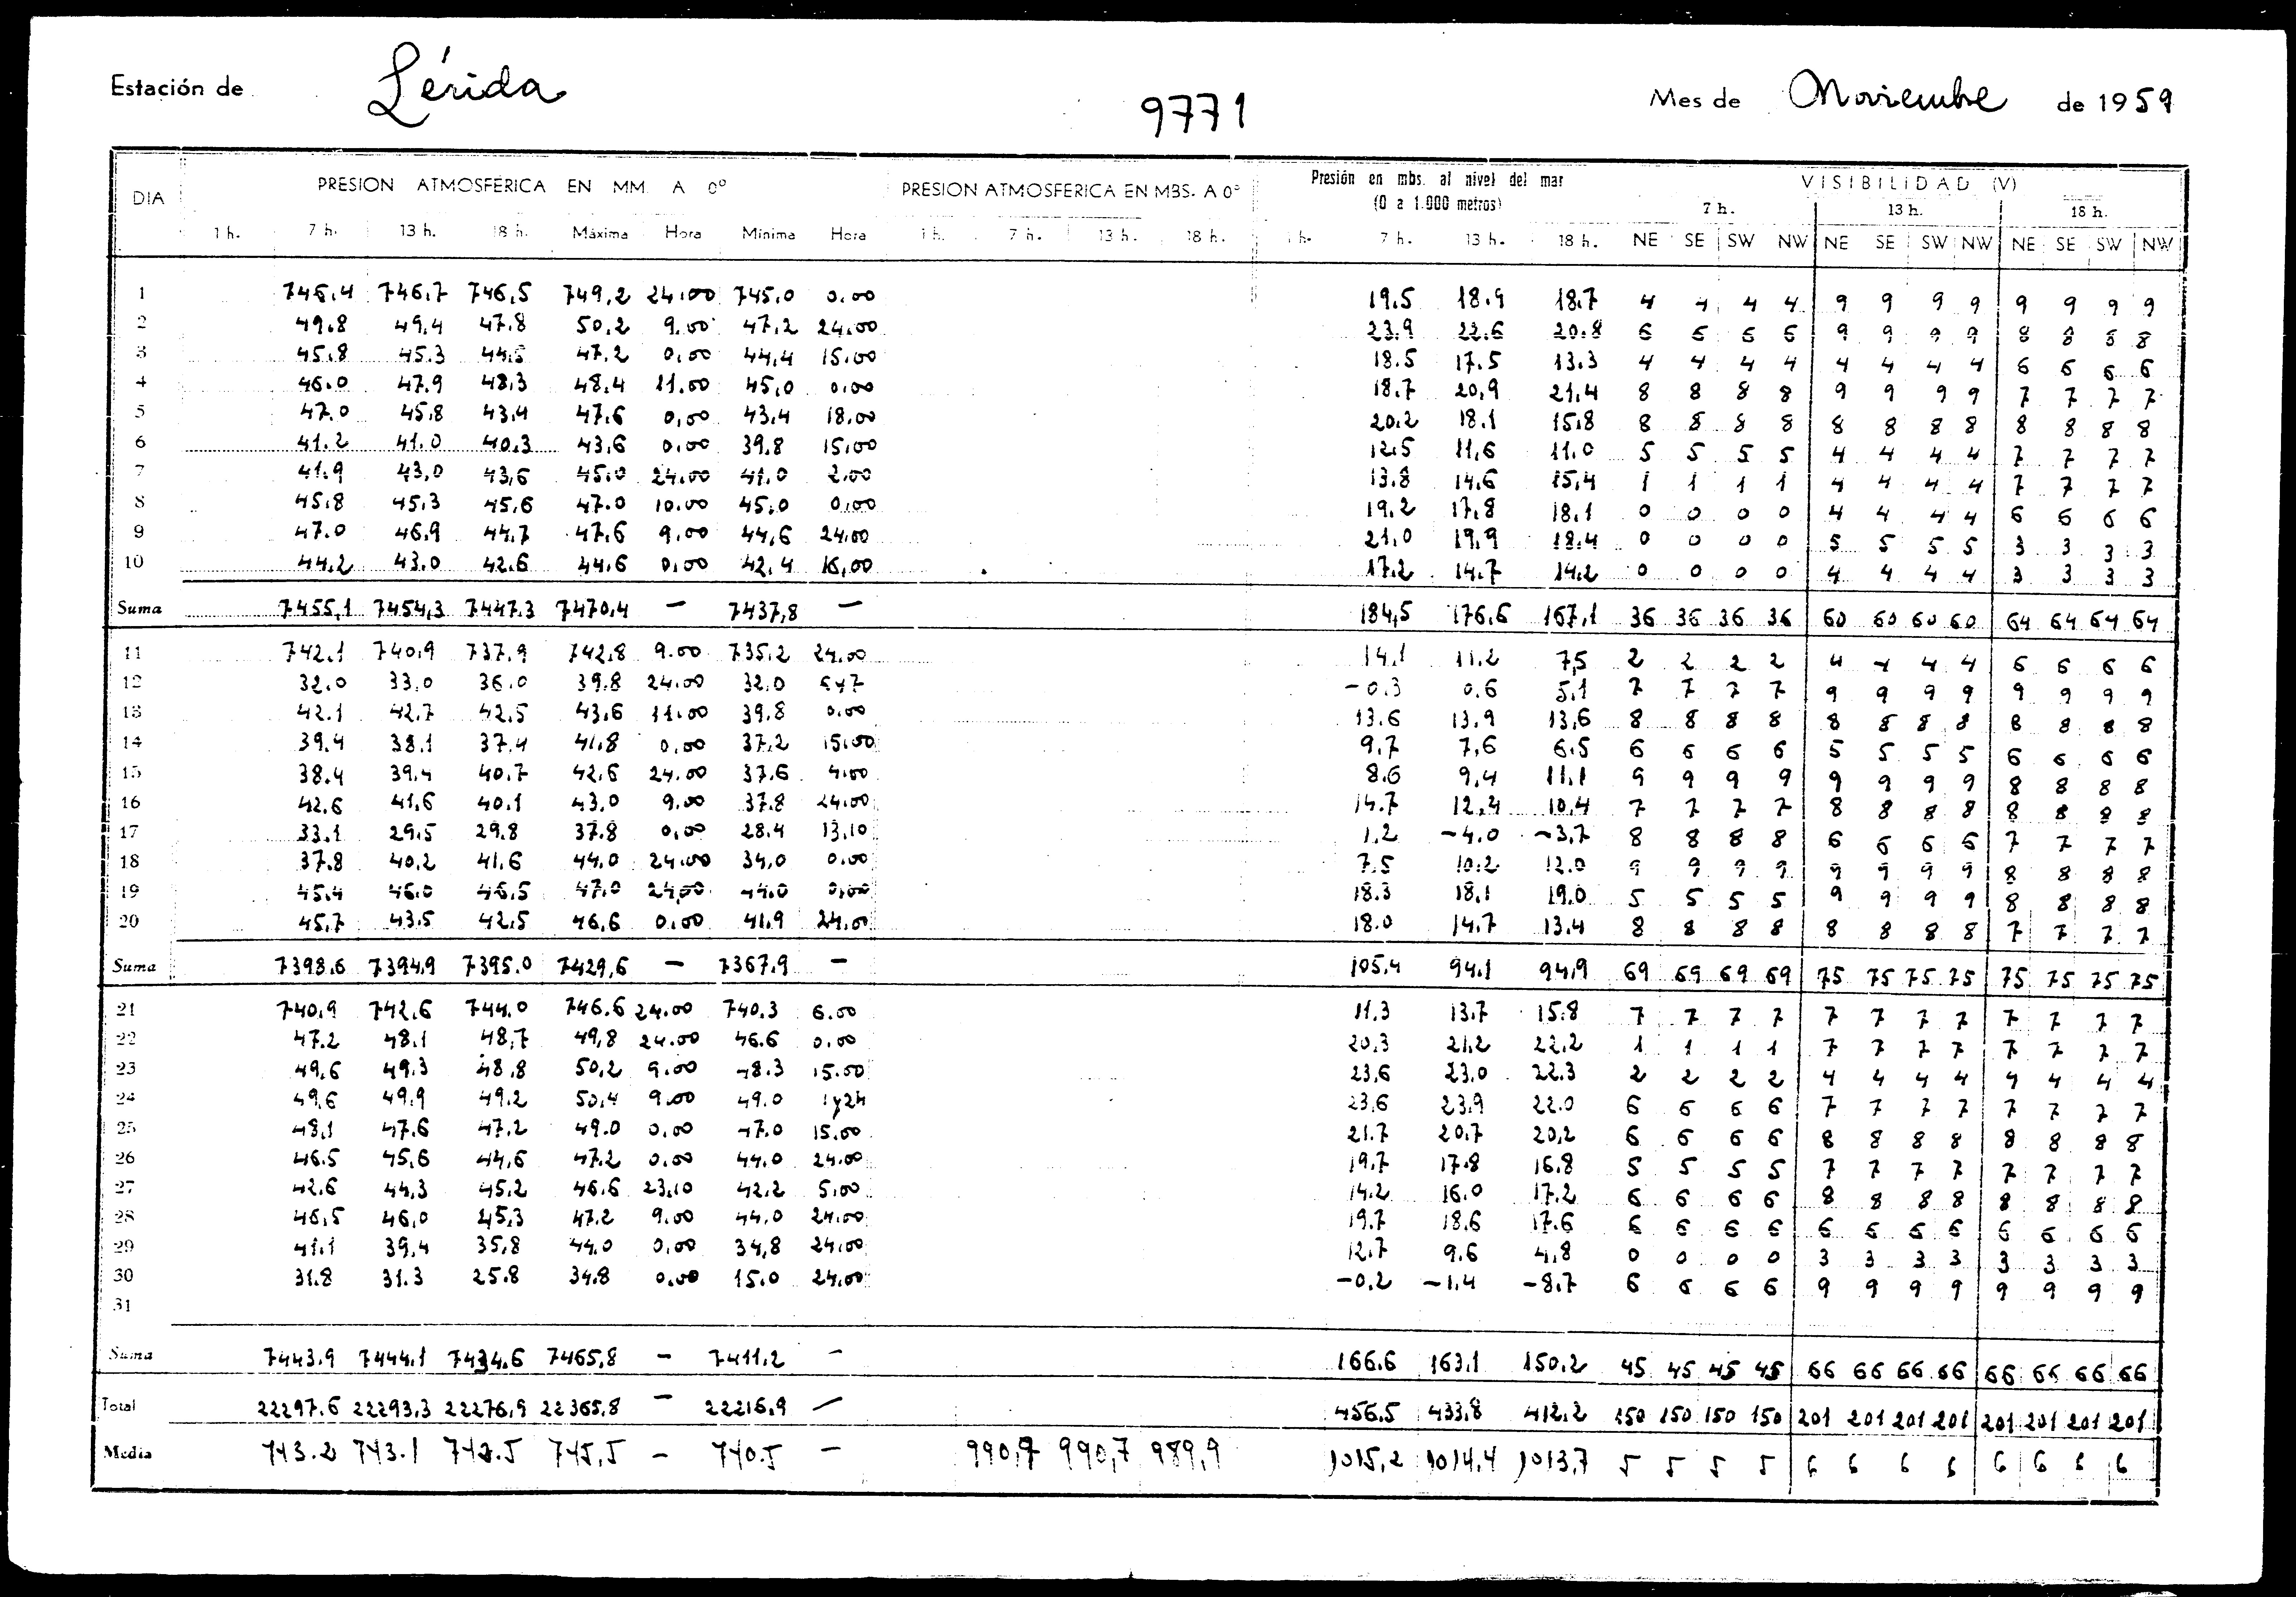 Estación de Lérida 9771 Mes de Noviembre de 1959
DIA PRESION ATMOSFERICA EN MM. A 0º PRESION ATMOSFERICA EN MBS. A 0º Presión en mbs. al nivel del mar VISIBILIDAD (V)
(0 a 1.000 metros) 7 h. 13 h. 18 h.
1 h. 7 h. 13 h. 18 h. Máxima Hora Mínima Hora 1 h. 7 h. 13 h. 18 h. 1 h. 7 h. 13 h. 18 h. NE SE SW NW NE SE SW NW NE SE SW NW
1 746,4 746,7 746,5 749,2 24,00 745,0 0,00 19.5 18.9 18.7 4 4 4 4 9 9 9 9 9 9 9 9
2 49.8 49,4 47.8 50,2 9.00 47,2 24,00 23.9 22.6 20.8 6 6 6 6 9 9 9 9 8 8 8 8
3 45.8 45.3 44.5 47,2 0,00 44,4 15,00 18.5 17.5 13.3 4 4 4 4 4 4 4 4 6 6 6 6
4 46.0 47.9 48,3 48,4 11.00 45,0 0,00 18.7 20,9 21,4 8 8 8 8 9 9 9 9 7 7 7 7
5 47.0 45,8 43,4 47.6 0,00 43,4 18,00 20,2 18.1 15,8 8 8 8 8 8 8 8 8 8 8 8 8
6 41.2 41.0 40.3 43,6 0.00 39.8 15,00 12,5 11,6 11,0 5 5 5 5 4 4 4 4 7 7 7 7
7 41.9 43,0 43,6 45,0 24,00 41,0 2,00 13.8 14.6 15,4 1 1 1 1 4 4 4 4 7 7 7 7
8 45,8 45,3 45,6 47.0 10.00 45,0 0,00 19,2 17,8 18.1 0 0 0 0 4 4 4 4 6 6 6 6
9 47.0 46,9 44,7 47,6 9,00 44,6 24,00 21,0 19,9 18,4 0 0 0 0 5 5 5 5 3 3 3 3
10 44,2 43,0 42,6 44,6 0,00 42,4 16,00 17.2 14.7 14,2 0 0 0 0 4 4 4 4 3 3 3 3
Suma 7455,1 7454,3 7447.3 7470,4 — 7437,8 — 184,5 176,6 167,1 36 36 36 36 60 60 60 60 64 64 64 64
11 742.1 740,9 737.9 742,8 9.00 735,2 24.00 14,1 11.2 7,5 2 2 2 2 4 4 4 4 6 6 6 6
12 32.0 33,0 36.0 39.8 24.00 32,0 6y7 -0.3 0.6 5,1 7 7 7 7 9 9 9 9 9 9 9 9
13 42.1 42,7 42,5 43,6 11.00 39,8 0.00 13.6 13,9 13,6 8 8 8 8 8 8 8 8 8 8 8 8
14 39.4 38.1 37.4 41,8 0,00 37,2 15,00 9.7 7,6 6.5 6 6 6 6 5 5 5 5 6 6 6 6
15 38.4 39,4 40.7 42,6 24.00 37.6 4,00 8.6 9,4 11,1 9 9 9 9 9 9 9 9 8 8 8 8
16 42.6 41,6 40.1 43,0 9,00 37.8 24,00 14.7 12,4 10,4 7 7 7 7 8 8 8 8 8 8 8 8
17 33.1 29.5 29.8 37.8 0,00 28.4 13,10 1,2 -4.0 -3,7 8 8 8 8 6 6 6 6 7 7 7 7
18 37.8 40,2 41,6 44,0 24,00 34,0 0.00 7.5 10.2 12.0 9 9 9 9 9 9 9 9 8 8 8 8
19 45.4 46.0 46.5 47,0 24,00 44,0 0,00 18.3 18,1 19,0 5 5 5 5 9 9 9 9 8 8 8 8
20 45,7 43.5 42,5 46,6 0,00 41,9 24,00 18.0 14.7 13.4 8 8 8 8 8 8 8 8 7 7 7 7
Suma 7398.6 7394,9 7395.0 7429,6 — 7367,9 — 105,4 94.1 94,9 69 69 69 69 75 75 75 75 75 75 75 75
21 740,9 742,6 744,0 746.6 24.00 740.3 6.00 11.3 13.7 15.8 7 7 7 7 7 7 7 7 7 7 7 7
22 47.2 48.1 48,7 49,8 24.00 46.6 0.00 20,3 21,2 22,2 1 1 1 1 7 7 7 7 7 7 7 7
23 49,6 49,3 48,8 50,2 9,00 48.3 15.00 23,6 23.0 22.3 2 2 2 2 4 4 4 4 4 4 4 4
24 49,6 49,9 49,2 50,4 9,00 49.0 1y24 23,6 23,9 22.0 6 6 6 6 7 7 7 7 7 7 7 7
25 48,1 47.6 47,2 49.0 0,00 47.0 15.00 21.7 20,7 20,2 6 6 6 6 8 8 8 8 8 8 8 8
26 46.5 45,6 44,6 47,2 0,00 44,0 24,00 19,7 17.8 16.8 5 5 5 5 7 7 7 7 7 7 7 7
27 42,6 44,3 45,2 46.6 23,10 42,2 5,00 14,2 16.0 17.2 6 6 6 6 8 8 8 8 8 8 8 8
28 46,5 46,0 45,3 47,2 9,00 44,0 24,00 19.7 18,6 17.6 6 6 6 6 6 6 6 6 6 6 6 6
29 41.1 39,4 35,8 44,0 0,00 34,8 24,00 12.7 9.6 4,8 0 0 0 0 3 3 3 3 3 3 3 3
30 31.8 31.3 25.8 34.8 0,00 15.0 24,00 -0,2 -1,4 -8,7 6 6 6 6 9 9 9 9 9 9 9 9
31
Suma 7443.9 7444.1 7434.6 7465,8 — 7411,2 — 166.6 163,1 150,2 45 45 45 45 66 66 66 66 66 66 66 66
Total 22297.6 22293,3 22276,9 22365,8 — 22216,9 — 456,5 433,8 412,2 150 150 150 150 201 201 201 201 201 201 201 201
Media 743.2 743.1 742.5 745,5 — 740.5 — 990,7 990,7 989,9 1015,2 1014,4 1013,7 5 5 5 5 6 6 6 6 6 6 6 6